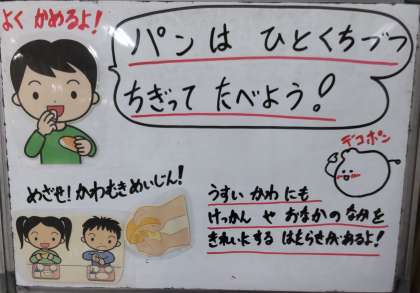 よく かめるよ!
パンは ひとくちづつ
ちぎって たべよう!
デコポン
めざせ!かわむきめいじん!
うすい かわ にも
けっかん や おなかのなかを
きれいにする はたらきがあるよ!